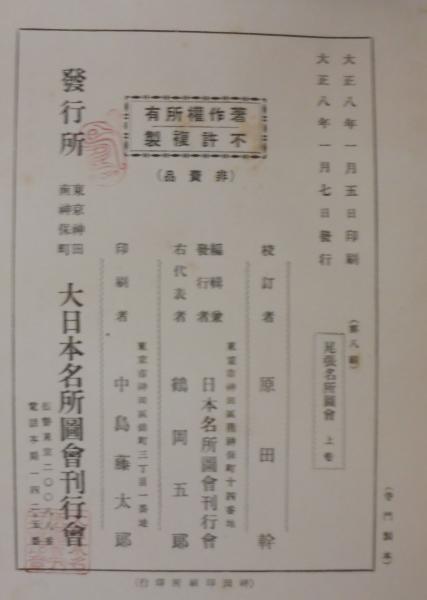 大正八年一月五日印刷
大正八年一月七日發行
(第八編)
尾張名所圖會 上卷
(寺門製本)
著作權所有
不許複製
(非賣品)
校訂者 原田幹
編輯兼
發行者
東京市神田區南神保町十四番地
日本名所圖會刊行會
右代表者 鶴岡五郎
東京市神田區錦町三丁目一番地
印刷者 中島藤太郎
發行所
東京神田
南神保町
大日本名所圖會刊行會
(神田印刷所印行)